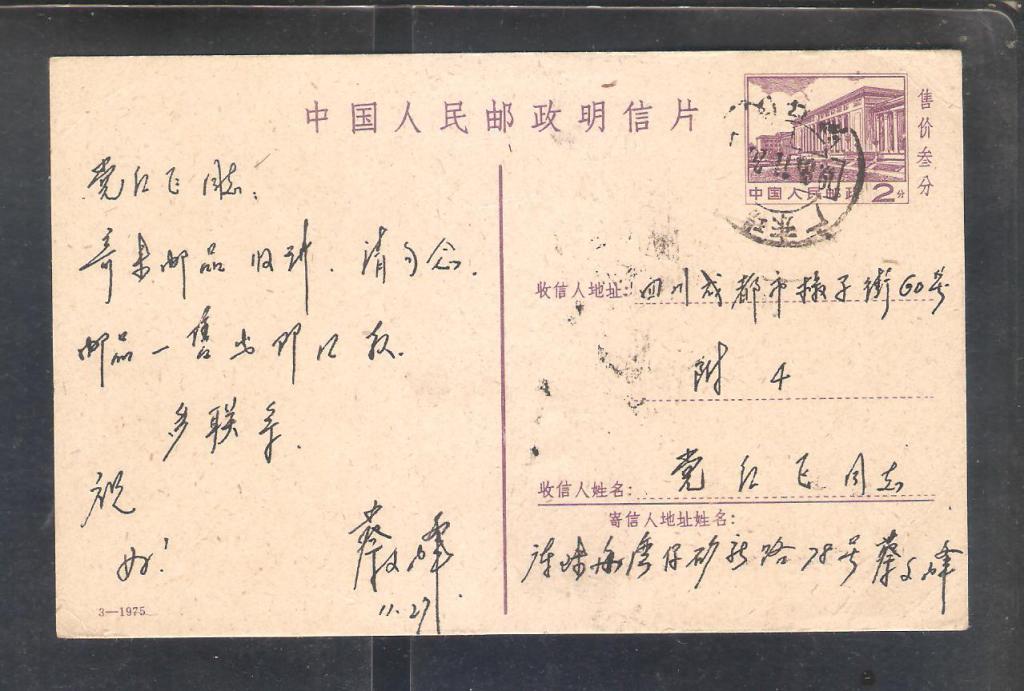 中国人民邮政明信片
售价叁分
中国人民邮政 2分
广东
党红飞同志：
寄来邮品收到.请勿念.
邮品一售出即汇款.
多联系.
祝
好！
蔡文峰
11.27
3—1975
收信人地址：四川成都市 子街60号
附 4
收信人姓名：党红飞同志
寄信人地址姓名：
珠海湾仔 路78号蔡文峰